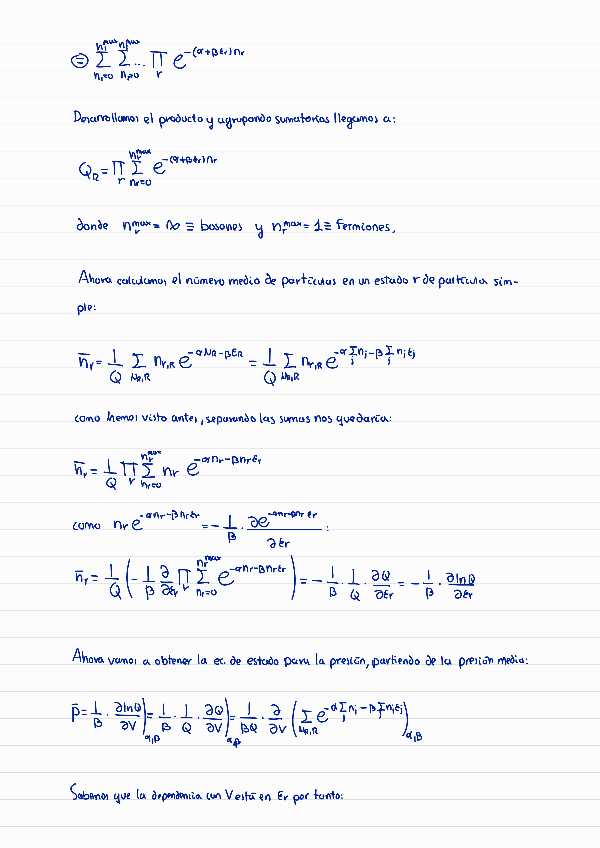 = ∑_{n₁=0}^{n₁^max} ∑_{n₂=0}^{n₂^max} ... ∏_r e^{-(α+βεr)nr}
Desarrollamos el producto y agrupando sumatorias llegamos a:
Q_R = ∏_r ∑_{nr=0}^{nr^max} e^{-(α+βεr)nr}
donde nr^max = ∞ ≡ bosones y nr^max = 1 ≡ Fermiones.
Ahora calculamos el número medio de partículas en un estado r de partícula sim-
ple:
n̄r = 1/Q ∑_{N_R,R} n_{r,R} e^{-αN_R - βE_R} = 1/Q ∑_{N_R,R} n_{r,R} e^{-α∑_j nj - β∑_j njεj}
como hemos visto antes, separando las sumas nos quedaría:
n̄r = 1/Q ∏_r ∑_{nr=0}^{nr^max} nr e^{-αnr - βnrεr}
como nr e^{-αnr - βnrεr} = - 1/β · ∂e^{-αnr - βnrεr}/∂εr :
n̄r = 1/Q (- 1/β ∂/∂εr ∏_r ∑_{nr=0}^{nr^max} e^{-αnr - βnrεr}) = - 1/β · 1/Q · ∂Q/∂εr = - 1/β · ∂lnQ/∂εr
Ahora vamos a obtener la ec. de estado para la presión, partiendo de la presión media:
p̄ = 1/β · ∂lnQ/∂V)_{α,β} = 1/β · 1/Q · ∂Q/∂V)_{α,β} = 1/βQ · ∂/∂V (∑_{N_R,R} e^{-α∑_j nj - β∑_j njεj})_{α,β}
Sabemos que la dependencia con V está en εr por tanto: